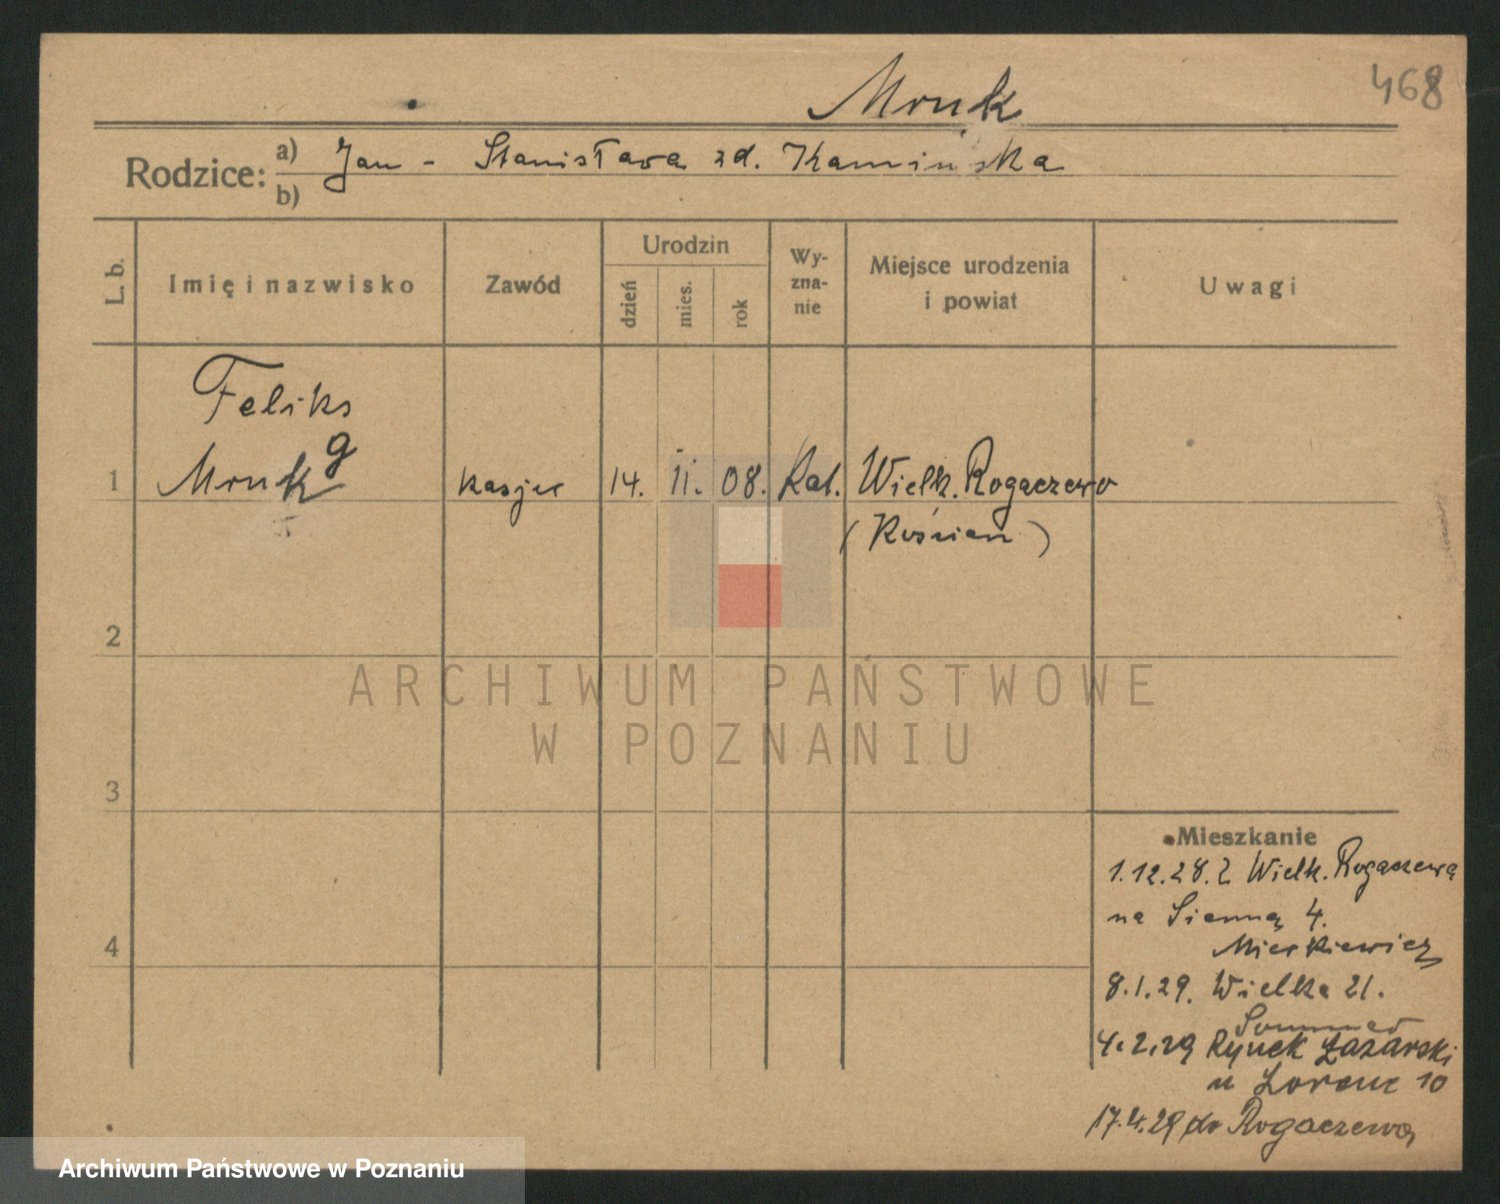 468
Mruk
Rodzice: a) Jan - Stanisława zd. Kamińska
b)
L. b.
Imię i nazwisko
Zawód
Urodzin
dzień
mies.
rok
Wy-
zna-
nie
Miejsce urodzenia
i powiat
Uwagi
Feliks
g
1 Mruk kasjer 14. 11. 08. Kat. Wielk. Rogaczewo
(Kościan)
2
ARCHIWUM PAŃSTWOWE
W POZNANIU
3
Mieszkanie
1.12.28. z Wielk. Rogaczewa
na Sienną 4.
4
8.1.29. Wielka 21.
4.2.29 Rynek Łazarski
u Lorenc 10
17.4.29 do Rogaczewa
Archiwum Państwowe w Poznaniu